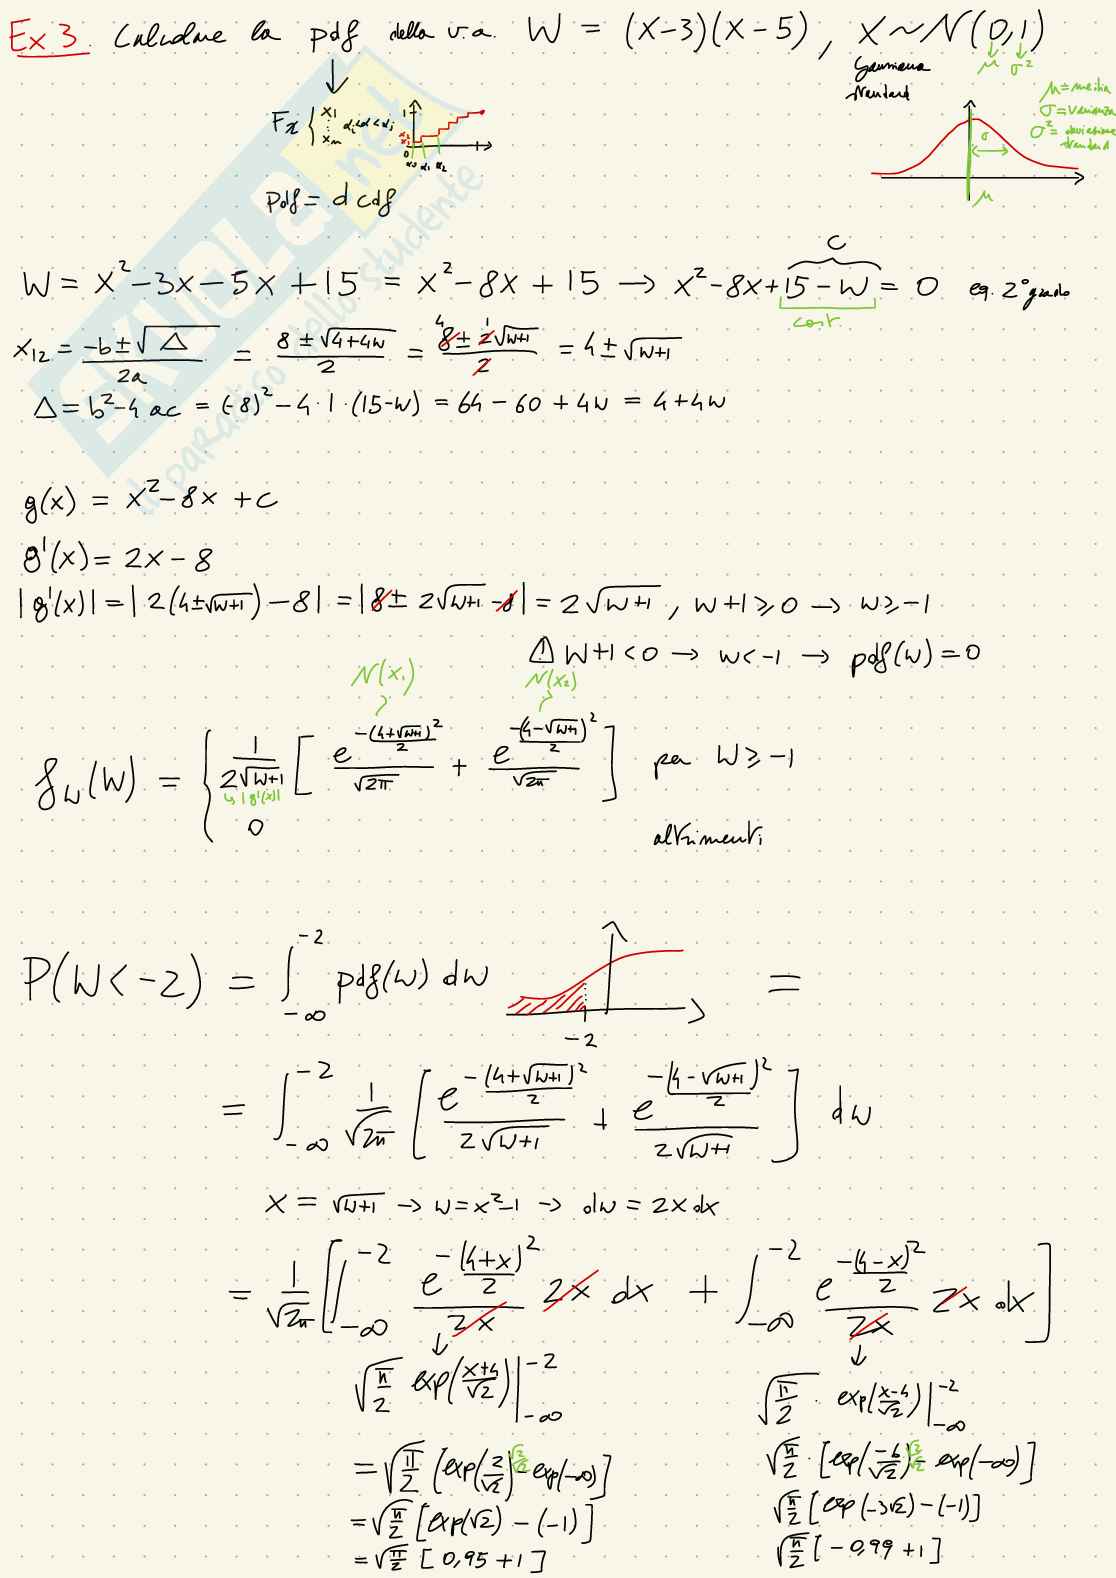 Ex 3. Calcolare la pdf della v.a. W = (x-3)(x-5), X ~ N(0,1)
μ σ²
Gaussiana
standard
μ = media
σ = varianza
σ² = deviazione
standard
Fx { x1 ⋮ xm αi<α<αj
1
0 α0 α1 α2
σ
μ
pdf = d cdf
W = x² - 3x - 5x + 15 = x² - 8x + 15 → x² - 8x + 15 - W = 0 eq. 2° grado
C
cost.
x12 = (-b ± √Δ)/2a = (8 ± √(4+4w))/2 = (8 ± 2√(w+1))/2 = 4 ± √(w+1)
4 1
Δ = b² - 4ac = (-8)² - 4·1·(15-w) = 64 - 60 + 4w = 4 + 4w
g(x) = x² - 8x + c
g'(x) = 2x - 8
|g'(x)| = |2(4±√(w+1)) - 8| = |8 ± 2√(w+1) - 8| = 2√(w+1), w+1 ≥ 0 → w ≥ -1
⚠ W+1 < 0 → w < -1 → pdf(w) = 0
N(x1) N(x2)
fW(W) = { 1/(2√(w+1)) [ e^(-(4+√(w+1))²/2)/√(2π) + e^(-(4-√(w+1))²/2)/√(2π) ] per W ≥ -1
↳ |g'(x)|
0 altrimenti
P(W < -2) = ∫_{-∞}^{-2} pdf(w) dw =
-2
= ∫_{-∞}^{-2} 1/√(2π) [ e^(-(4+√(w+1))²/2)/(2√(w+1)) + e^(-(4-√(w+1))²/2)/(2√(w+1)) ] dw
x = √(w+1) → w = x²-1 → dw = 2x dx
= 1/√(2π) [ ∫_{-∞}^{-2} e^(-(4+x)²/2)/(2x) 2x dx + ∫_{-∞}^{-2} e^(-(4-x)²/2)/(2x) 2x dx ]
↓ ↓
√(π/2) exp((x+4)/√2) |_{-∞}^{-2}
= √(π/2) [exp(2/√2) √2/√2 - exp(-∞)]
= √(π/2) [exp(√2) - (-1)]
= √(π/2) [0,95 + 1]
√(π/2) · exp((x-4)/√2) |_{-∞}^{-2}
√(π/2) · [exp(-6/√2) √2/√2 - exp(-∞)]
√(π/2) [exp(-3√2) - (-1)]
√(π/2) [-0,99 + 1]
SKUOLA.net
il paradiso dello studente